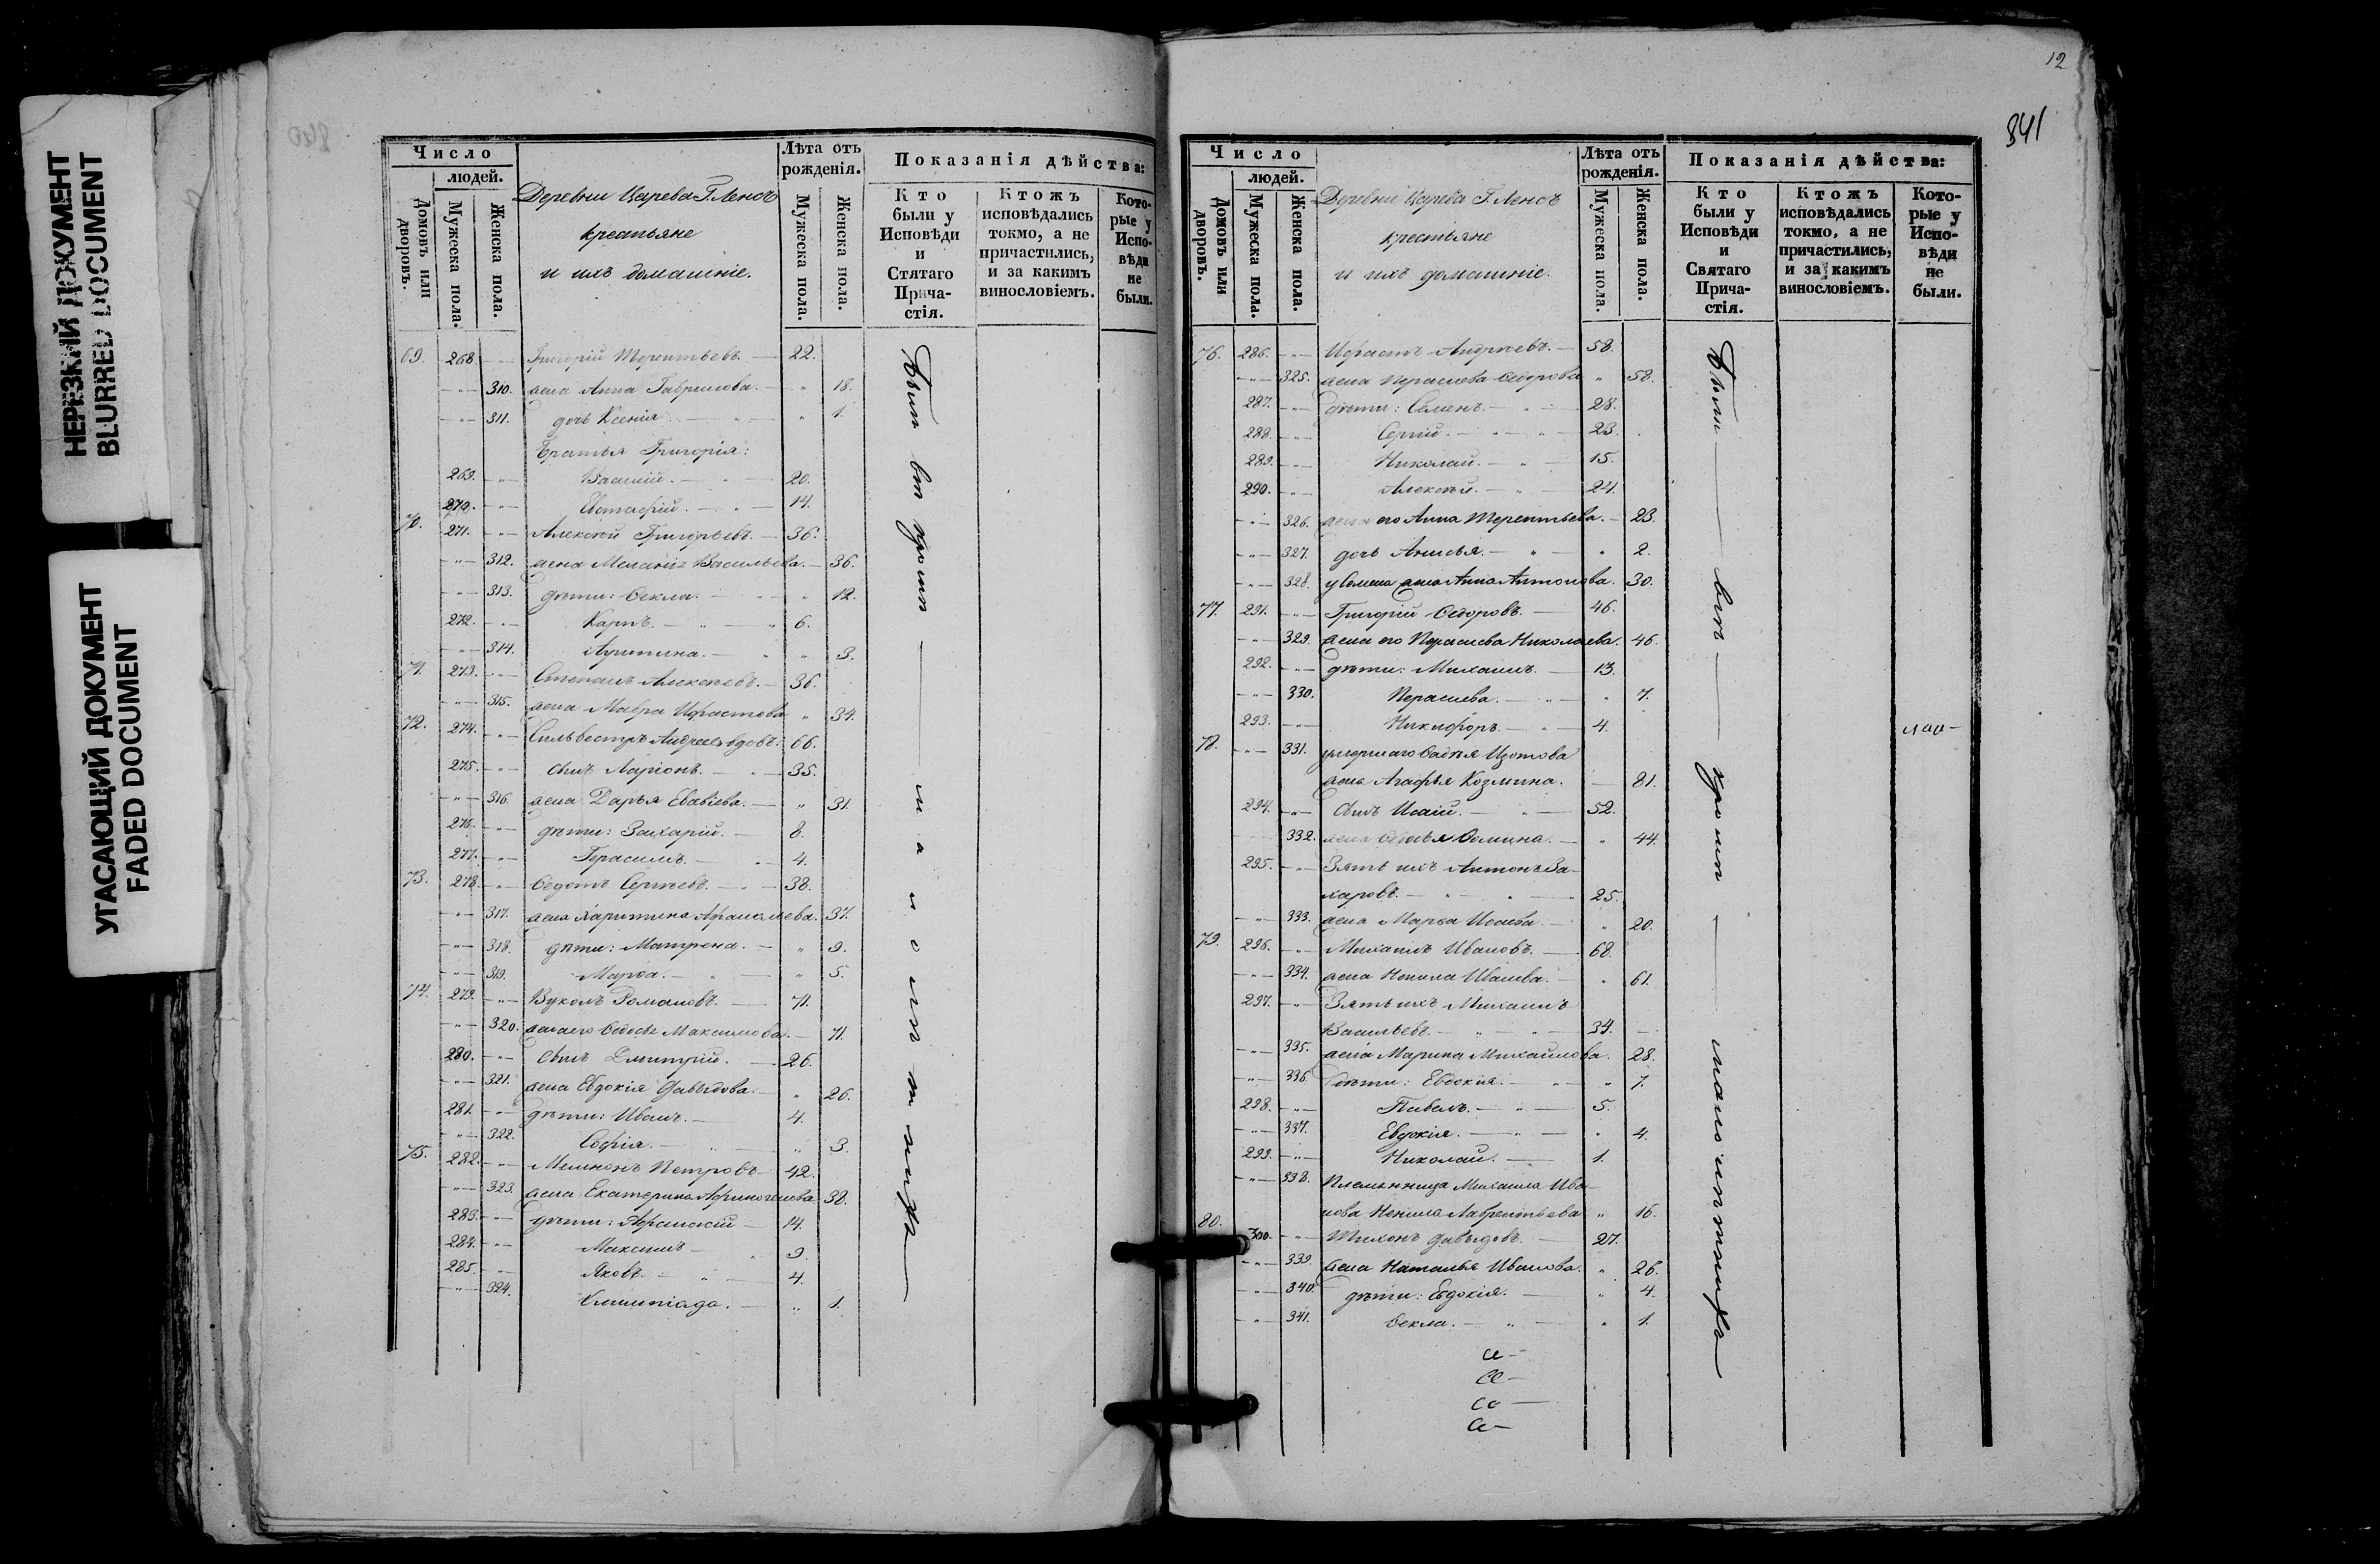 НЕРЕЗКИЙ ДОКУМЕНТ
BLURRED DOCUMENT
УГАСАЮЩИЙ ДОКУМЕНТ
FADED DOCUMENT
Число
людей.
Домовъ или дворовъ.
Мужеска пола.
Женска пола.
Деревни Царева
крестьяне
и ихъ домашніе.
Лѣта отъ рожденія.
Мужеска пола.
Женска пола.
Показанія дѣйства:
Кто были у Исповѣди и Стятаго Прича-стія.
Ктожъ исповѣдались токмо, а не причастились, и за какимъ винословіемъ.
Кото-рые у Испо-вѣди не были.
69. 268. Григорій Терентьевъ. 22.
310. жена Анна Гаврилова. 18.
311. дочь Ксенія 1.
Братья Григорія:
269. Василій. 20.
270. Евстафій. 14.
70. 271. Алексѣй Григорьевъ. 36.
312. жена Меланія Васильева. 36.
313. дѣти: Ѳекла. 12.
272. Карпъ. 6.
314. 3.
71. 273. Степанъ Алексѣевъ. 36.
315. жена Мавра 34.
72. 274. Сильвестръ Андреевъ вдовъ. 66.
275. сынъ Ларіонъ. 35.
316. жена Дарья 31.
276. дѣти: Захарій. 8.
277. Герасимъ. 4.
73. 278. Ѳедотъ Сергѣевъ. 38.
317. жена Харитина Афанасьева. 37.
318. дѣти: Матрена. 9.
319. Марѳа. 5.
74. 279. Вуколъ Романовъ. 71.
320. жена его Ѳедосья Максимова. 71.
280. сынъ Дмитрій. 26.
321. жена Евдокія Давыдова. 26.
281. дѣти: Иванъ. 4.
322. Софія. 3.
75. 282. Петровъ 42.
323. жена Екатерина Афиногенова 38.
283. дѣти: Афанасій 14.
284. Максимъ 9.
285. Яковъ. 4.
324. 1.
Были
12
841
Число
людей.
Домовъ или дворовъ.
Мужеска пола.
Женска пола.
Деревни Царева
крестьяне
и ихъ домашніе.
Лѣта отъ рожденія.
Мужеска пола.
Женска пола.
Показанія дѣйства:
Кто были у Исповѣди и Святаго Прича-стія.
Ктожъ исповѣдались токмо, а не причастились, и за какимъ винословіемъ.
Кото-рые у Испо-вѣди не были.
76. 286. Андреевъ. 58.
325. жена Параскева Ѳедорова 58.
287. дѣти: Семенъ. 28.
288. Сергій. 23.
289. Николай. 15.
290. Алексѣй. 24.
326. жена его Анна Терентьева. 23.
327. дочь Анисья. 2.
328. у Семена жена Анна Антонова. 30.
77. 291. Григорій Ѳедоровъ. 46.
329. жена его Параскева Николаева. 46.
292. дѣти: Михаилъ. 13.
330. Параскева. 7.
293. Никифоръ. 4.
78. 331. умершаго Изотова
жена Агафья Козмина. 81.
294. сынъ Исаій. 52.
332. жена Ѳедосья Ѳомина. 44.
295. Зять ихъ Антонъ За-
харовъ. 25.
333. жена Марѳа Исаева. 20.
79. 296. Михаилъ Ивановъ. 68.
334. жена Ненила Иванова. 61.
297. Зять ихъ Михаилъ
Васильевъ. 34.
335. жена Марина Михайлова. 28.
336. дѣти: Евдокия. 7.
298. Павелъ. 5.
337. Евдокія. 4.
299. Николай. 1.
338. Племянница Михаила Ива-
нова Ненила Лаврентьева 16.
80. 300. Тихонъ Давыдовъ. 27.
339. жена Наталья Иванова. 26.
340. дѣти: Евдокія. 4.
341. Ѳекла. 1.
Были